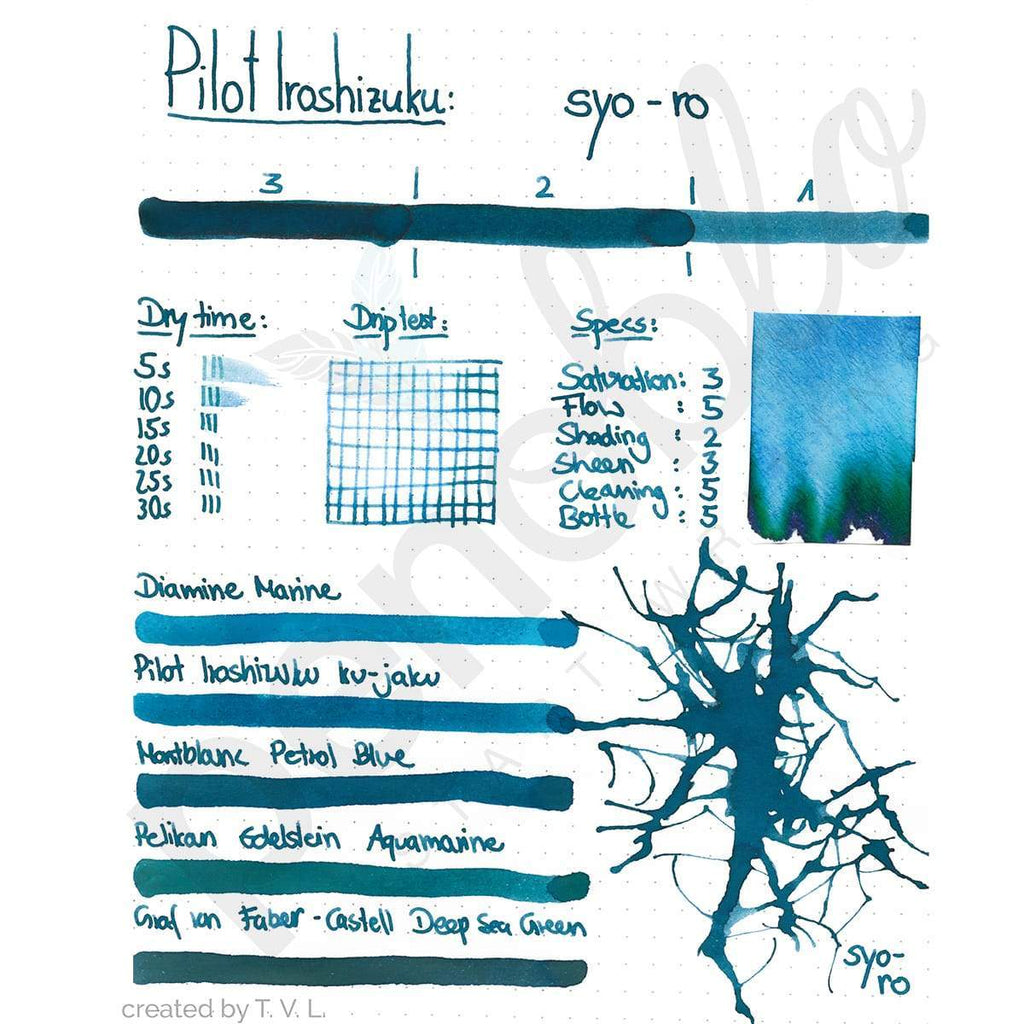 Pilot Iroshizuku: syo-ro
3 | 2 | 1
Dry time:
5s
10s
15s
20s
25s
30s
Drip test:
Specs:
Saturation: 3
Flow : 5
Shading : 2
Sheen : 3
Cleaning: 5
Bottle : 5
Diamine Marine
Pilot Iroshizuku ku-jaku
Montblanc Petrol Blue
Pelikan Edelstein Aquamarine
Graf von Faber-Castell Deep Sea Green
syo-
ro
created by T. V. L.
penoblo